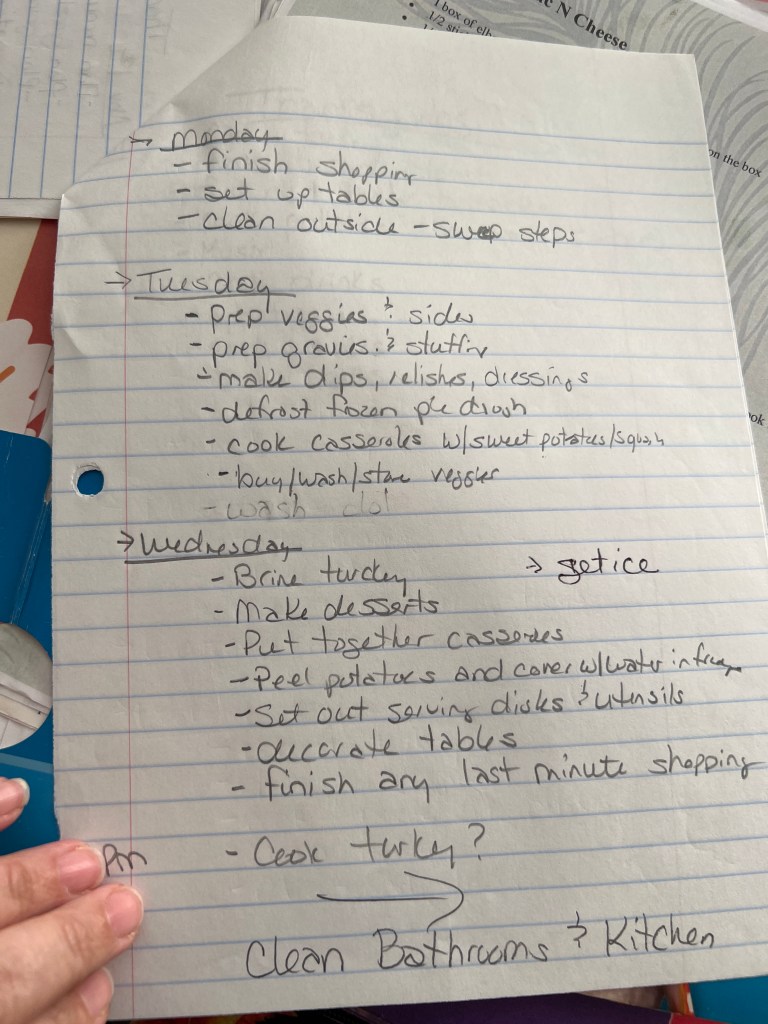 c N Cheese
1 box of elb
1/2 sti
on the box
ok
→ Monday
- finish shopping
- set up tables
- clean outside - sweep steps
→ Tuesday
- prep veggies & sides
- prep gravies & stuffin
- make dips, relishes, dressings
- defrost frozen pie dough
- cook casseroles w/sweet potatoes/squash
- buy/wash/store veggies
- wash clot
→ Wednesday
- Brine turkey → get ice
- Make desserts
- Put together casseroles
- Peel potatoes and cover w/water in fridge
- Set out serving dishes & utensils
- decorate tables
- finish any last minute shopping
Pm - Cook turkey?
Clean Bathrooms & Kitchen